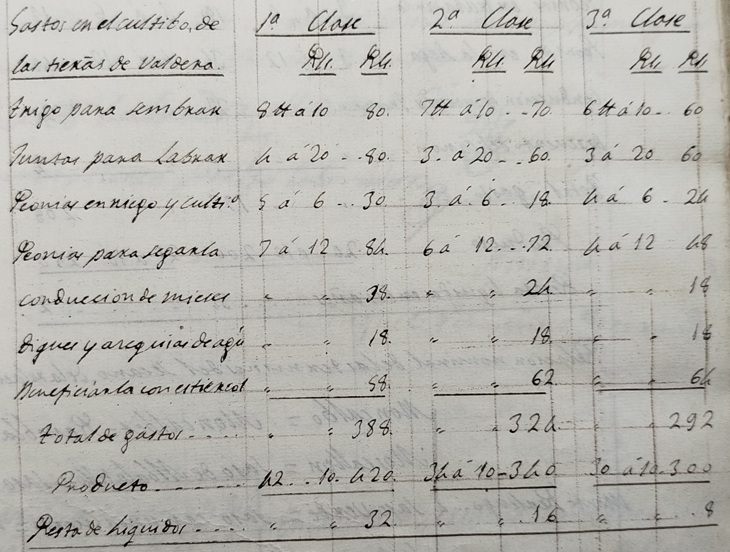 Gastos en el cultibo, de 1ª Clase 2ª Clase 3ª Clase
las tierras de Valdera. Rs. Rs. Rs. Rs. Rs. Rs.
Trigo para sembrar 8 tt a 10 80. 7 tt á 10 - - 70 6 tt á 10 - 60
Juntas para Labrar 4 á 20 - - 80. 3 - á 20 - - 60. 3 á 20 60
Peonias en riego y culti.º 5 á 6 - - 30 3 - á 6 - 18. 4 á 6 - 24
Peonias para segarla 7 á 12 84 6 á 12 - - 72 4 á 12 48
conduccion de mieses " " 38. " " 24. " " 18
digues y arequias de agu " " 18. " " 18. " " 18
Beneficiarla con estiercol " " 58. " " 62 " " 64
Total de gastos - - - - " " 388 " " 324. " " 292
Producto - - - - - 42 . . 10. 420. 34 á 10 - 340 30 á 10. 300
Resta de Liquidos - - - - " " 32 " " 16 " " 8